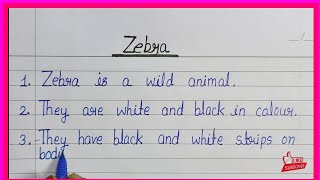 Zebra
1. Zebra is a wild animal.
2. They are white and black in colour.
3. They have black and white strips on
body